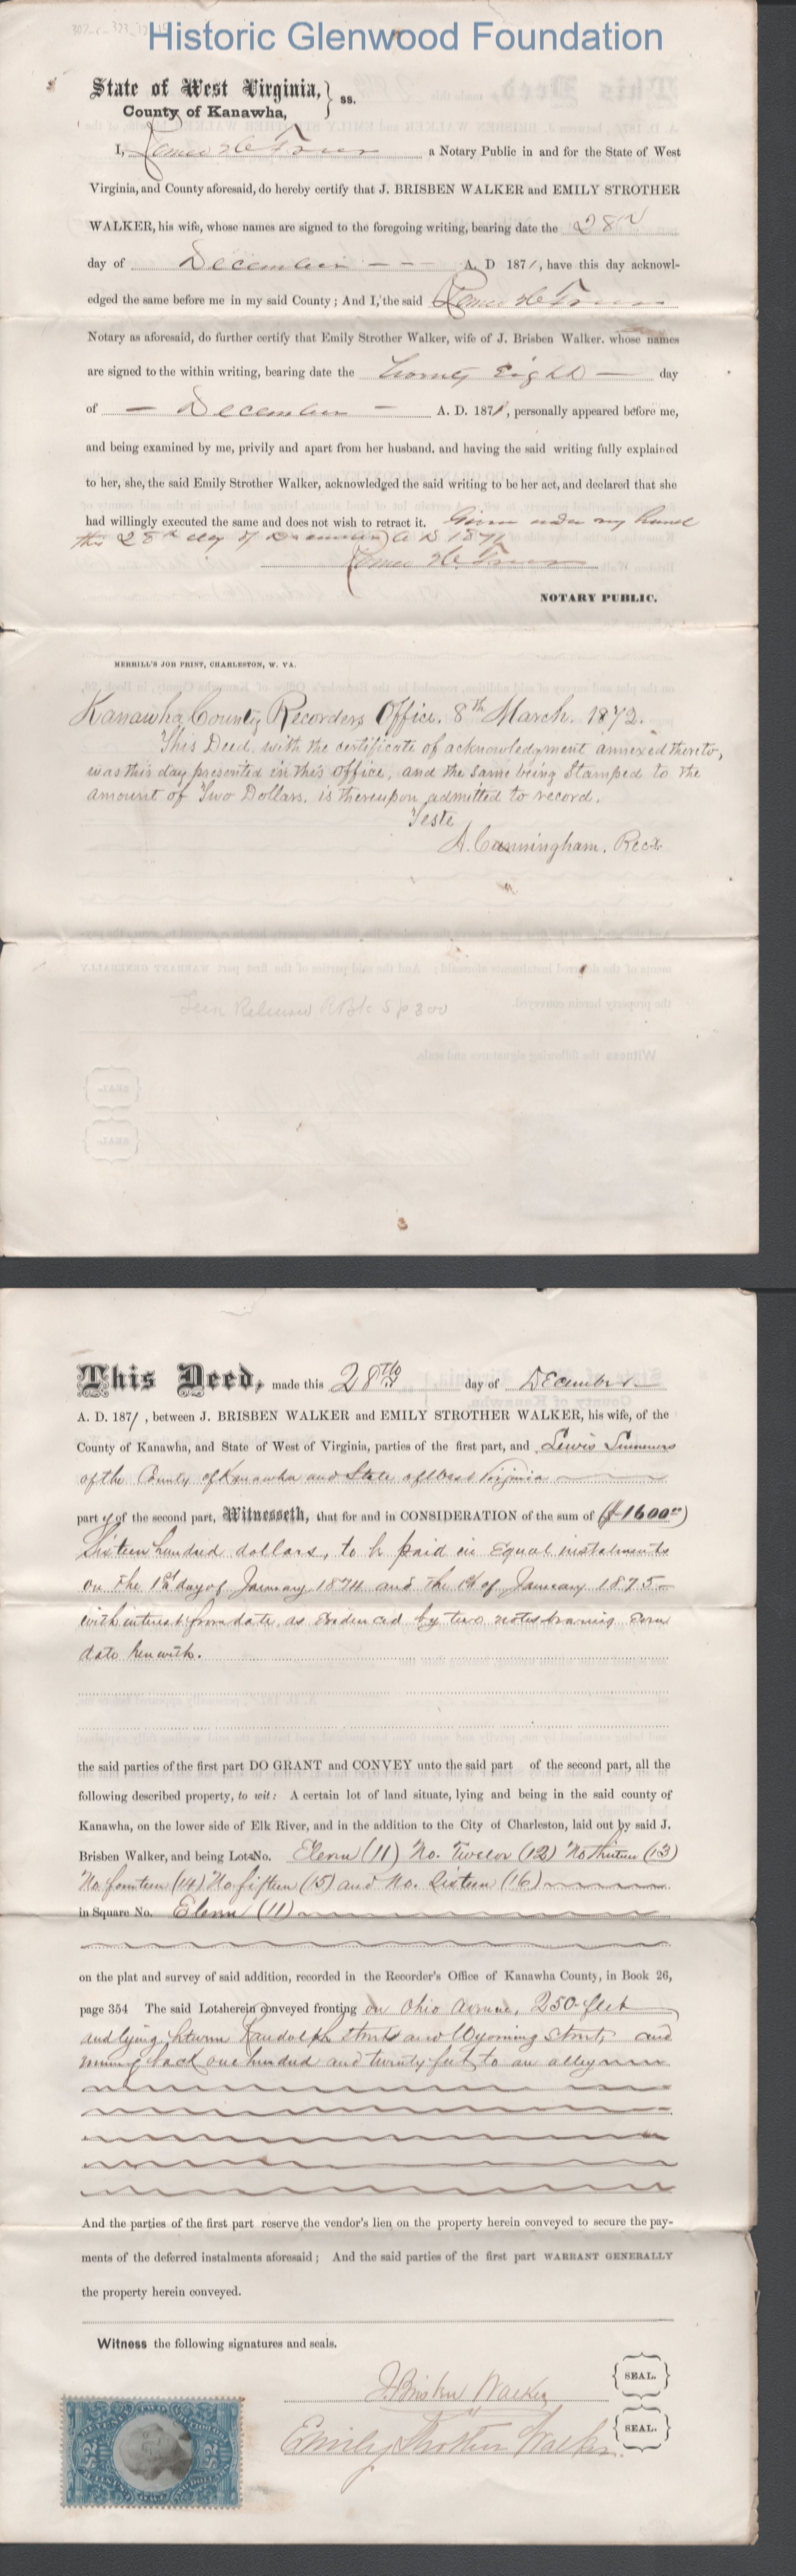 Historic Glenwood Foundation
State of West Virginia, } ss.
County of Kanawha,
I, a Notary Public in and for the State of West
Virginia, and County aforesaid, do hereby certify that J. BRISBEN WALKER and EMILY STROTHER
WALKER, his wife, whose names are signed to the foregoing writing, bearing date the 28
day of December — — — A. D 1871, have this day acknowl-
edged the same before me in my said County; And I, the said
Notary as aforesaid, do further certify that Emily Strother Walker, wife of J. Brisben Walker. whose names
are signed to the within writing, bearing date the Twenty Eighth — day
of — December — A. D. 1871, personally appeared before me,
and being examined by me, privily and apart from her husband. and having the said writing fully explained
to her, she, the said Emily Strother Walker, acknowledged the said writing to be her act, and declared that she
had willingly executed the same and does not wish to retract it. Given under my hand
this 28th day of December A D 1871
NOTARY PUBLIC.
MERRILL'S JOB PRINT, CHARLESTON, W. VA.
Kanawha County Recorders Office. 8th March. 1872.
This Deed, with the certificate of acknowledgment annexed thereto,
was this day presented in this office, and the same being Stamped to the
amount of Two Dollars. is thereupon admitted to record.
Teste
A. Cunningham. Recr
Lien Released R Bk 5 p 300
This Deed, made this 28th day of December
A. D. 1871, between J. BRISBEN WALKER and EMILY STROTHER WALKER, his wife, of the
County of Kanawha, and State of West of Virginia, parties of the first part, and Lewis Summers
of the County of Kanawha and State of West Virginia
part y of the second part, Witnesseth, that for and in CONSIDERATION of the sum of ($1600)
Sixteen hundred dollars, to be paid in Equal instalments
on the 1st day of January 1874 and the 1st of January 1875
with interest from date, as Evidenced by two notes bearing Even
date herewith.
the said parties of the first part DO GRANT and CONVEY unto the said part of the second part, all the
following described property, to wit: A certain lot of land situate, lying and being in the said county of
Kanawha, on the lower side of Elk River, and in the addition to the City of Charleston, laid out by said J.
Brisben Walker, and being Lots No. Eleven (11) No. Twelve (12) No thirteen (13)
No. fourteen (14) No. fifteen (15) and No. Sixteen (16)
in Square No. Eleven (11)
on the plat and survey of said addition, recorded in the Recorder's Office of Kanawha County, in Book 26,
page 354 The said Lots herein conveyed fronting on Ohio Avenue, 250 feet
and lying between Randolph Street and Wyoming Street, and
running back one hundred and twenty feet to an alley
And the parties of the first part reserve the vendor's lien on the property herein conveyed to secure the pay-
ments of the deferred instalments aforesaid; And the said parties of the first part WARRANT GENERALLY
the property herein conveyed.
Witness the following signatures and seals.
J. Brisben Walker {SEAL.}
Emily Strother Walker {SEAL.}
$2 $2